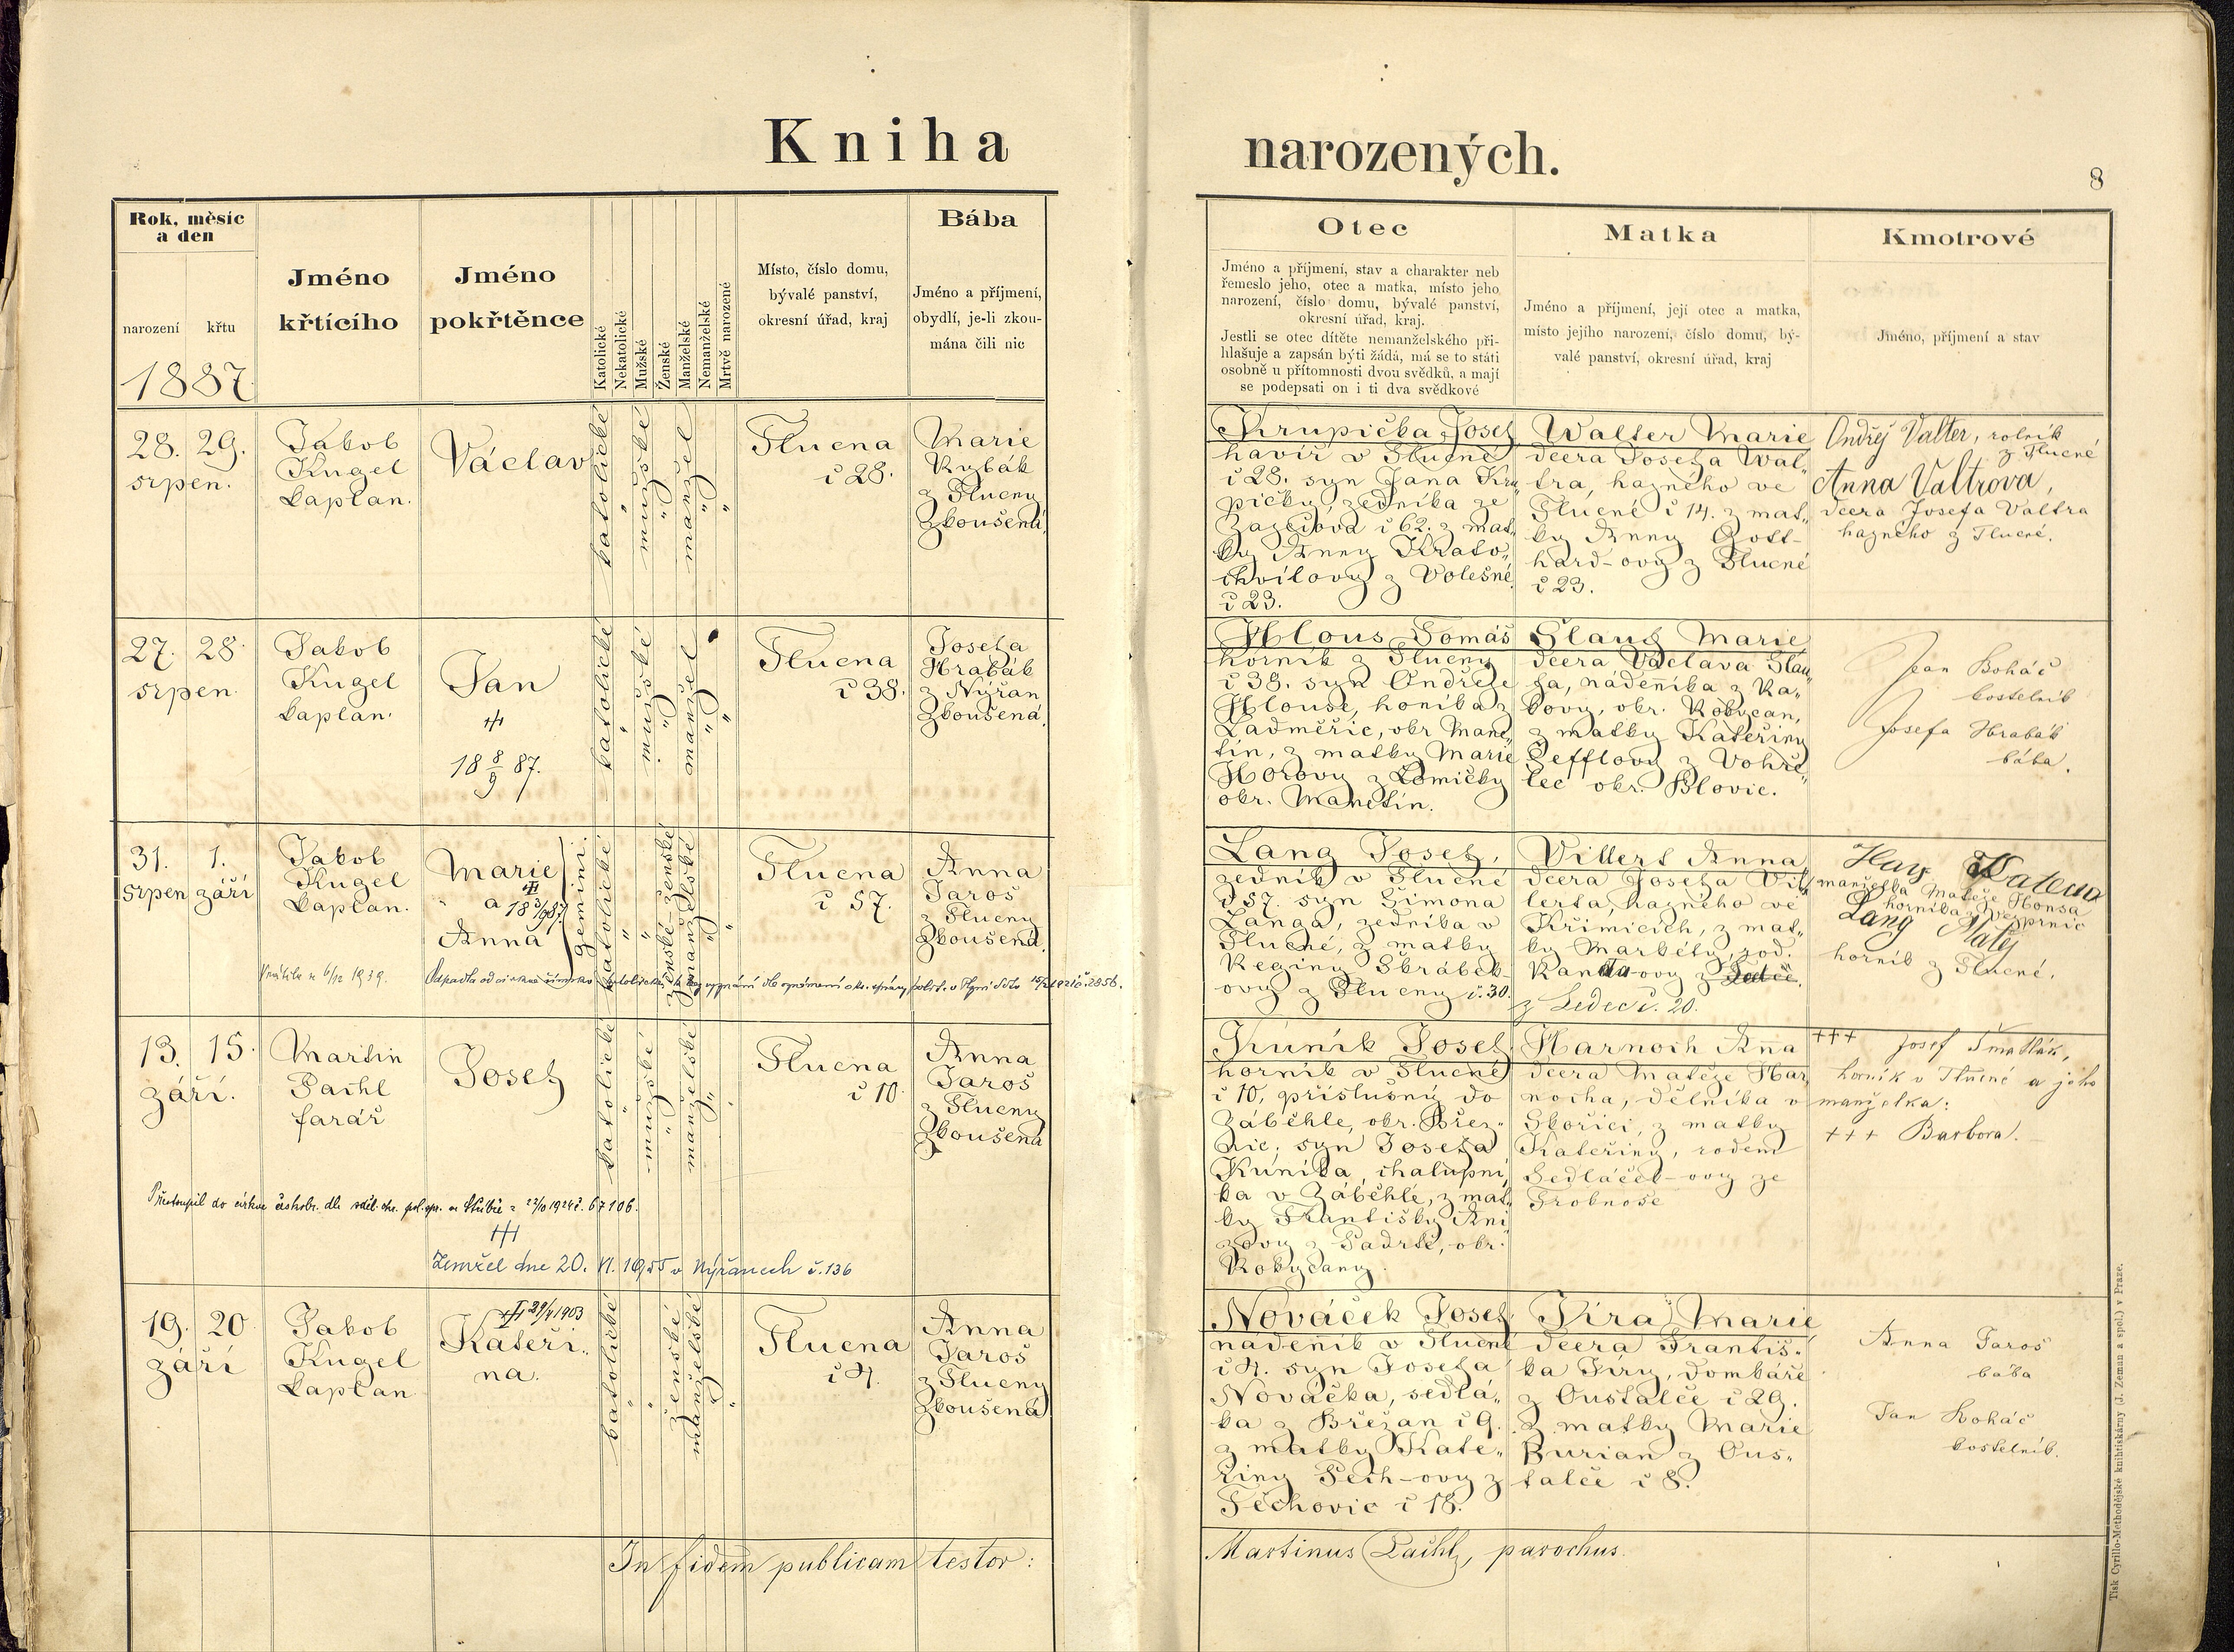 Kniha narozených.
8
Rok, měsíc
a den
narození
křtu
1887
Jméno
křtícího
Jméno
pokřtěnce
Katolické
Nekatolické
Mužské
Ženské
Manželské
Nemanželské
Mrtvě narozené
Místo, číslo domu,
bývalé panství,
okresní úřad, kraj
Bába
Jméno a příjmení,
obydlí, je-li zkou-
mána čili nic
Otec
Jméno a příjmení, stav a charakter neb
řemeslo jeho, otec a matka, místo jeho
narození, číslo domu, bývalé panství,
okresní úřad, kraj.
Jestli se otec dítěte nemanželského při-
hlašuje a zapsán býti žádá, má se to státi
osobně u přítomnosti dvou svědků, a mají
se podepsati on i ti dva svědkové
Matka
Jméno a příjmení, její otec a matka,
místo jejího narození, číslo domu, bý-
valé panství, okresní úřad, kraj
Kmotrové
Jméno, příjmení a stav
28. 29.
srpen.
Jakob
Kugel
kaplan.
Václav
katolické
"
mužské
"
manžel
"
"
Tlucna
č 28.
Marie
Rybák
z Tlucny
Zkoušená.
Krupička Josef
havíř v Tlucné
č 28. syn Jana Kru„
pičky, zedníka ze
č 62. z mat„
ky Anny Krato„
chvílovy z Volešné
č 23.
Walter Marie
dcera Josefa Wal„
tra, hajného ve
Tlucné č 14. z mat„
ky Anny Gott-
hard-ovy z Tlucné
č 23.
Ondřej Valter, rolník
z Tlucné
Anna Valtrova,
dcera Josefa Valtra
hajného z Tlucné.
27. 28.
srpen.
Jakob
Kugel
kaplan.
Jan
18 8/9 87.
katolické
"
mužské
"
manžel
"
"
Tlucna
č 38.
Josefa
Hrabák
z Nýřan
Zkoušená.
Hlous Tomáš
horník z Tlucny
č 38. syn Ondřeje
Hlouse, honíka z
Ladměřic, okr Mane„
tín, z matky Marie
Horovy z Lomičky
okr. Manetín.
Marie
dcera Václava
nádenníka z Ra„
kovy, okr. Rokycan,
z matky Kateřiny
Šefflovy z
okr. Blovic.
Jean Boháč
kostelník
Josefa Hrabák
bába.
31. 1.
srpen září
Jakob
Kugel
kaplan.
Marie
a
Anna
gemini.
katolické
"
"
ženské-ženské
manželské
"
"
Tlucna
č 57.
Anna
Jaroš
z Tlucny
Zkoušená.
Lang Josef,
zedník v Tlucné
č 57. syn Šimona
Langa, zedníka v
Tlucné, z matky
Reginy Škrábek-
ovy z Tlucny č. 30.
Villert Anna
dcera Josefa Vil„
lerta, hajného ve
Křimicích, z mat„
ky Markéty, rod.
Randa-ovy
z Ledec č. 20.
Katerina
manželka Matěje Honsa
horníka z Vejprnic
Lang Matěj
horník z Tlucné.
Vrátila se 6/12 1939.
Odpadla od církve římsko katolické
13. 15.
září.
Martin
Pachl
farář
Josef
katolické
"
mužské
"
manželské
"
Tlucna
č 10
Anna
Jaroš
z Tlucny
Zkoušená
Kuník Josef
horník v Tlucné
č 10, príslušný do
Záběhle, okr. Břez„
nic, syn Josefa
Kuníka, chalupní„
ka v Záběhlé, z mat„
ky Františky Kni„
zovy z Padrtě, okr.
Rokycany.
Harnoch Anna
dcera Matěje Har„
nocha, dělníka v
Skořici, z matky
Kateřiny, rodem
Sedláček-ovy ze
Trokavec
+++ Josef Šmatlák,
horník v Tlucné a jeho
manželka:
+++ Barbora.
Přistoupil do církve českobr. dle sděl. okr. pol. spr. ve Stříbře z 23/10 1924 č. 67106.
Zemřel dne 20. VI. 1955 v Nýřanech č. 136
19. 20
září
Jakob
Kugel
kaplan
29/4 1903
Kateři„
na.
katolické
"
"
ženské
manželské
"
"
Tlucna
č 4.
Anna
Jaroš
z Tlucny
Zkoušená
Nováček Josef
nádenník v Tlucné
č 4. syn Josefa
Nováčka, sedlá„
ka z Břežan č 9.
z matky Kate„
řiny Pech-ovy z
Těchovic č 18.
Jíra Marie
dcera Františ„
ka Jíry, domkáře
z Oustalče č 29.
z matky Marie
Burian z Ous„
talče č 8.
Anna Jaroš
bába
Jan Boháč
kostelník.
In fidem publicam testor:
Martinus Pachl, parochus.
Tisk Cyrillo-Methodějské knihtiskárny (J. Zeman a spol.) v Praze.